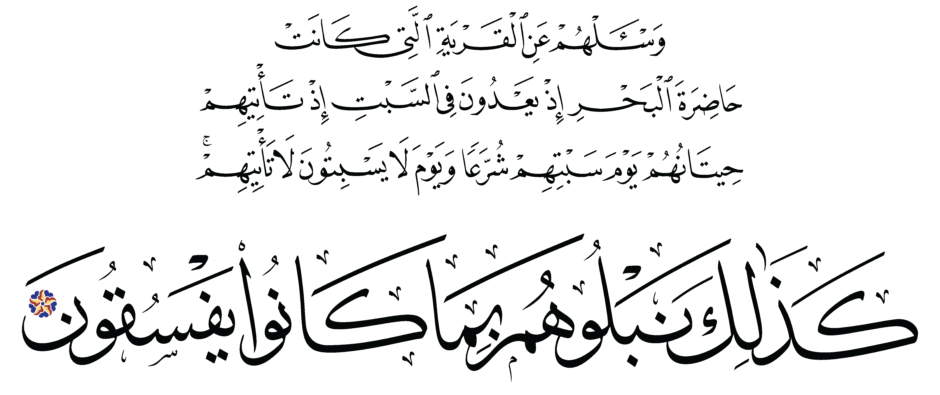 وَسْـَٔلْهُمْ عَنِ ٱلْقَرْيَةِ ٱلَّتِى كَانَتْ
حَاضِرَةَ ٱلْبَحْرِ إِذْ يَعْدُونَ فِى ٱلسَّبْتِ إِذْ تَأْتِيهِمْ
حِيتَانُهُمْ يَوْمَ سَبْتِهِمْ شُرَّعًا وَيَوْمَ لَا يَسْبِتُونَ لَا تَأْتِيهِمْ ۚ
كَذَٰلِكَ نَبْلُوهُم بِمَا كَانُوا۟ يَفْسُقُونَ